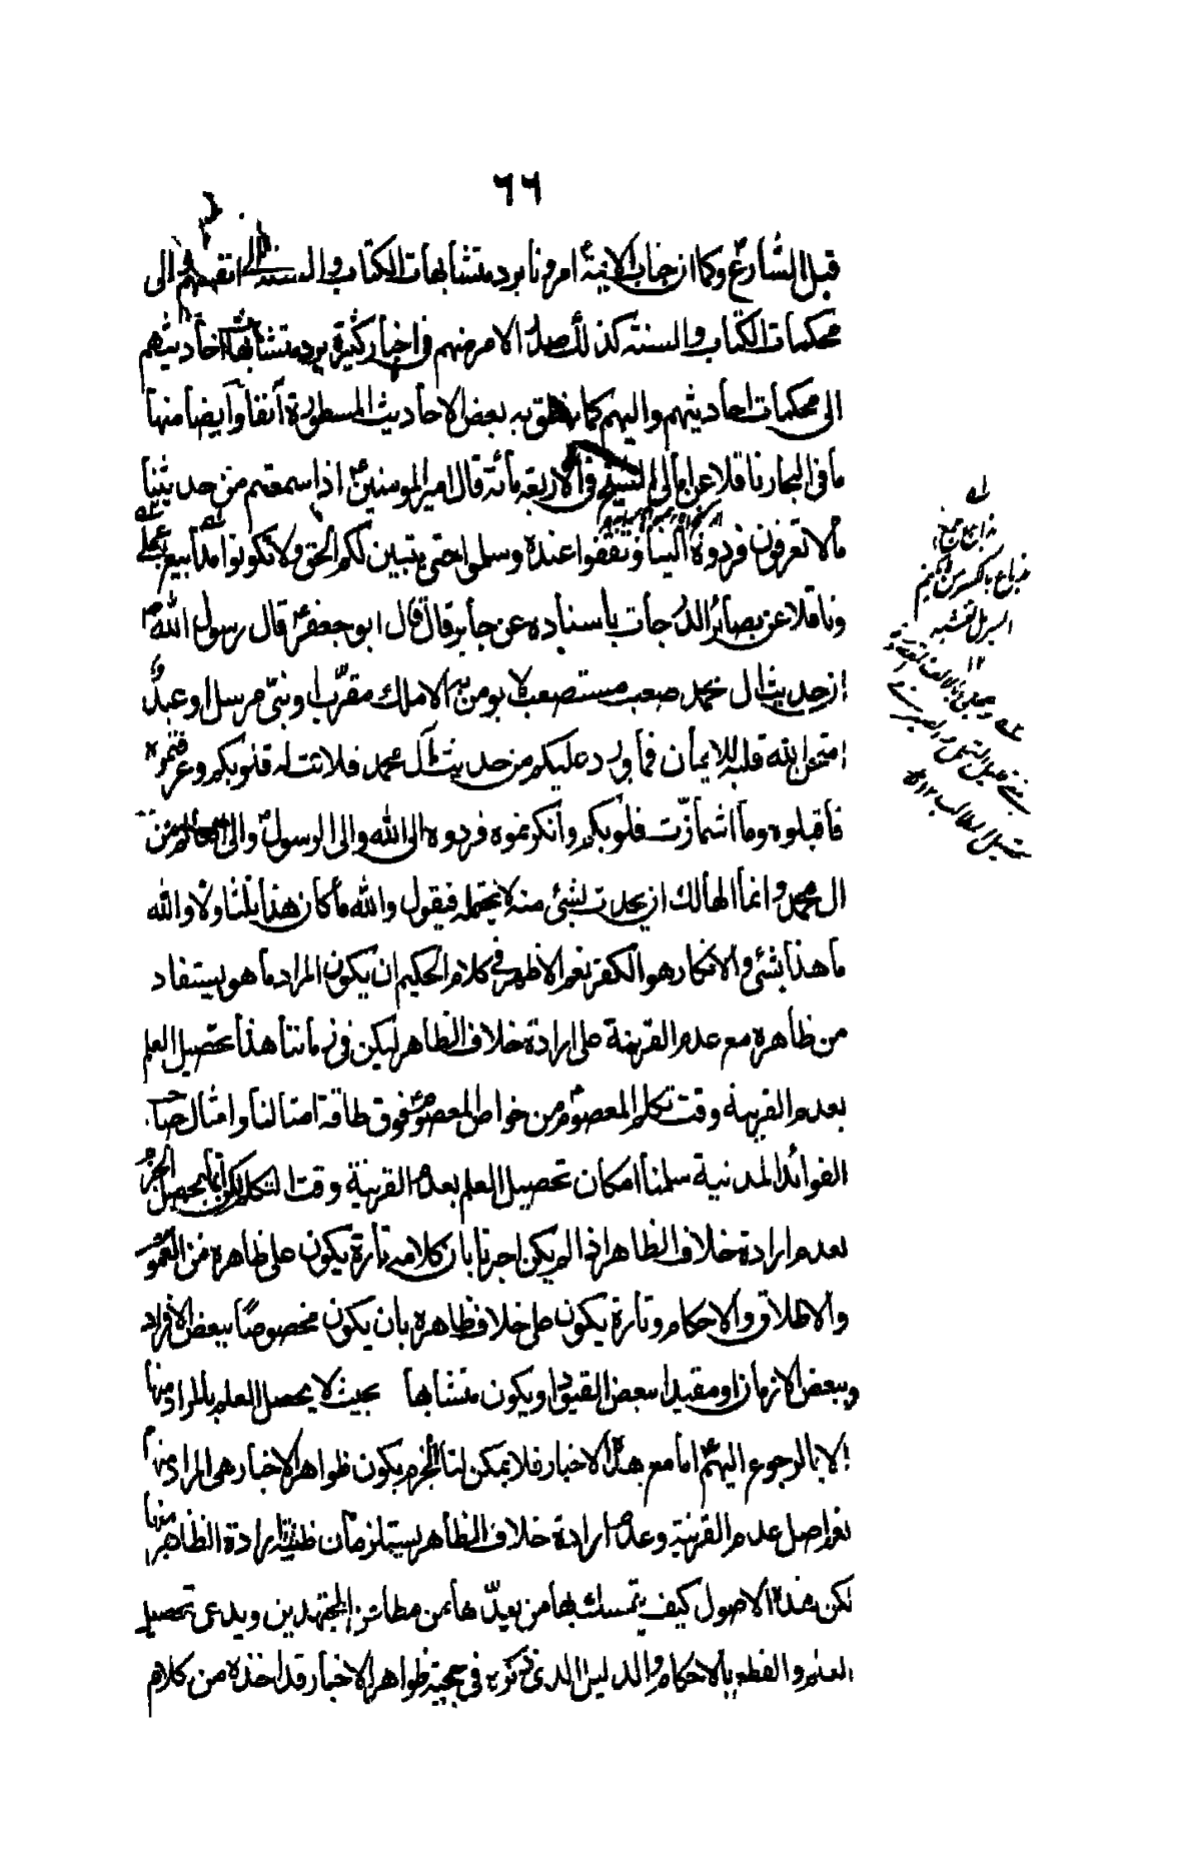 ٦٦
قبل الشارع وكما ان جناب الائمة امرونا برد متشابهات الكتاب والسنة الى والى
محكمات الكتاب والسنة كذلك صدر الامر منهم فى اخبار كثيرة برد متشابهات احاديثهم
الى محكمات احاديثهم واليهم كما نطق به بعض الاحاديث المسطورة آنفا وايضا منها
ما فى البحار ناقلا عن فى الاربعمائة قال امير المومنين اذا سمعتم من حديثنا
ما لا تعرفون فردوه الينا وتقفوا عنده وسلموا حتى يتبين لكم الحق ولا تكونوا مذاييع عجلى
وناقلا عن بصائر الدرجات باسناده عن جابر قال قال ابو جعفر قال رسول الله ص
ان حديث ال محمد صعب مستصعب لا يومن به الا ملك مقرّب او نبىّ مرسل او عبد
امتحن الله قلبه للايمان فما ورد عليكم من حديث آل محمد فلانت له قلوبكم وعرفتموه
فاقبلوه وما اشمأزّت قلوبكم وانكرتموه فردوه الى الله والى الرسول والى العالم من
ال محمد وانما الهالك ان يحدث بشئ منه لا يحتمله فيقول والله ما كان هذا ثلثا ولا والله
ما هذا بشئ والانكار هو الكفر نعم الاظهر فى كلام الحكيم ان يكون المراد ما هو يستفاد
من ظاهره مع عدم القرينة على ارادة خلاف الظاهر لكن فى زماننا هذا تحصيل العلم
بعدم القرينة وقت تكلم المعصوم من خواص المعصوم فوق طاقة امثالنا وامثال صاحب
الفوائد المدنية سلمنا امكان تحصيل العلم بعدم القرينة وقت التكلم لكن انما يحصل الجزم
بعدم ارادة خلاف الظاهر اذا لم يكن اخبرنا بان كلامه تارة يكون على ظاهره من العموم
والاطلاق والاحكام وتارة يكون على خلاف ظاهره بان يكون مخصوصًا ببعض الافراد
وببعض الازمان او مقيدا ببعض القيود او يكون متشابها بحيث لا يحصل العلم بالمراد منها
الا بالرجوع اليهم اما مع هذه الاخبار فلا يمكن لنا الجزم بكون ظواهر الاخبار هى المراد منها
نعم اصل عدم القرينة وعدم ارادة خلاف الظاهر يستلزمان ظنية ارادة الظاهر منها
لكن هذه الاصول كيف يتمسك بها من يعدّها من مطاعن المجتهدين ويدعى تحصيل
العلم والقطع بالاحكام والدليل الذى ذكره فى حجية ظواهر الاخبار قد اخذه من كلام